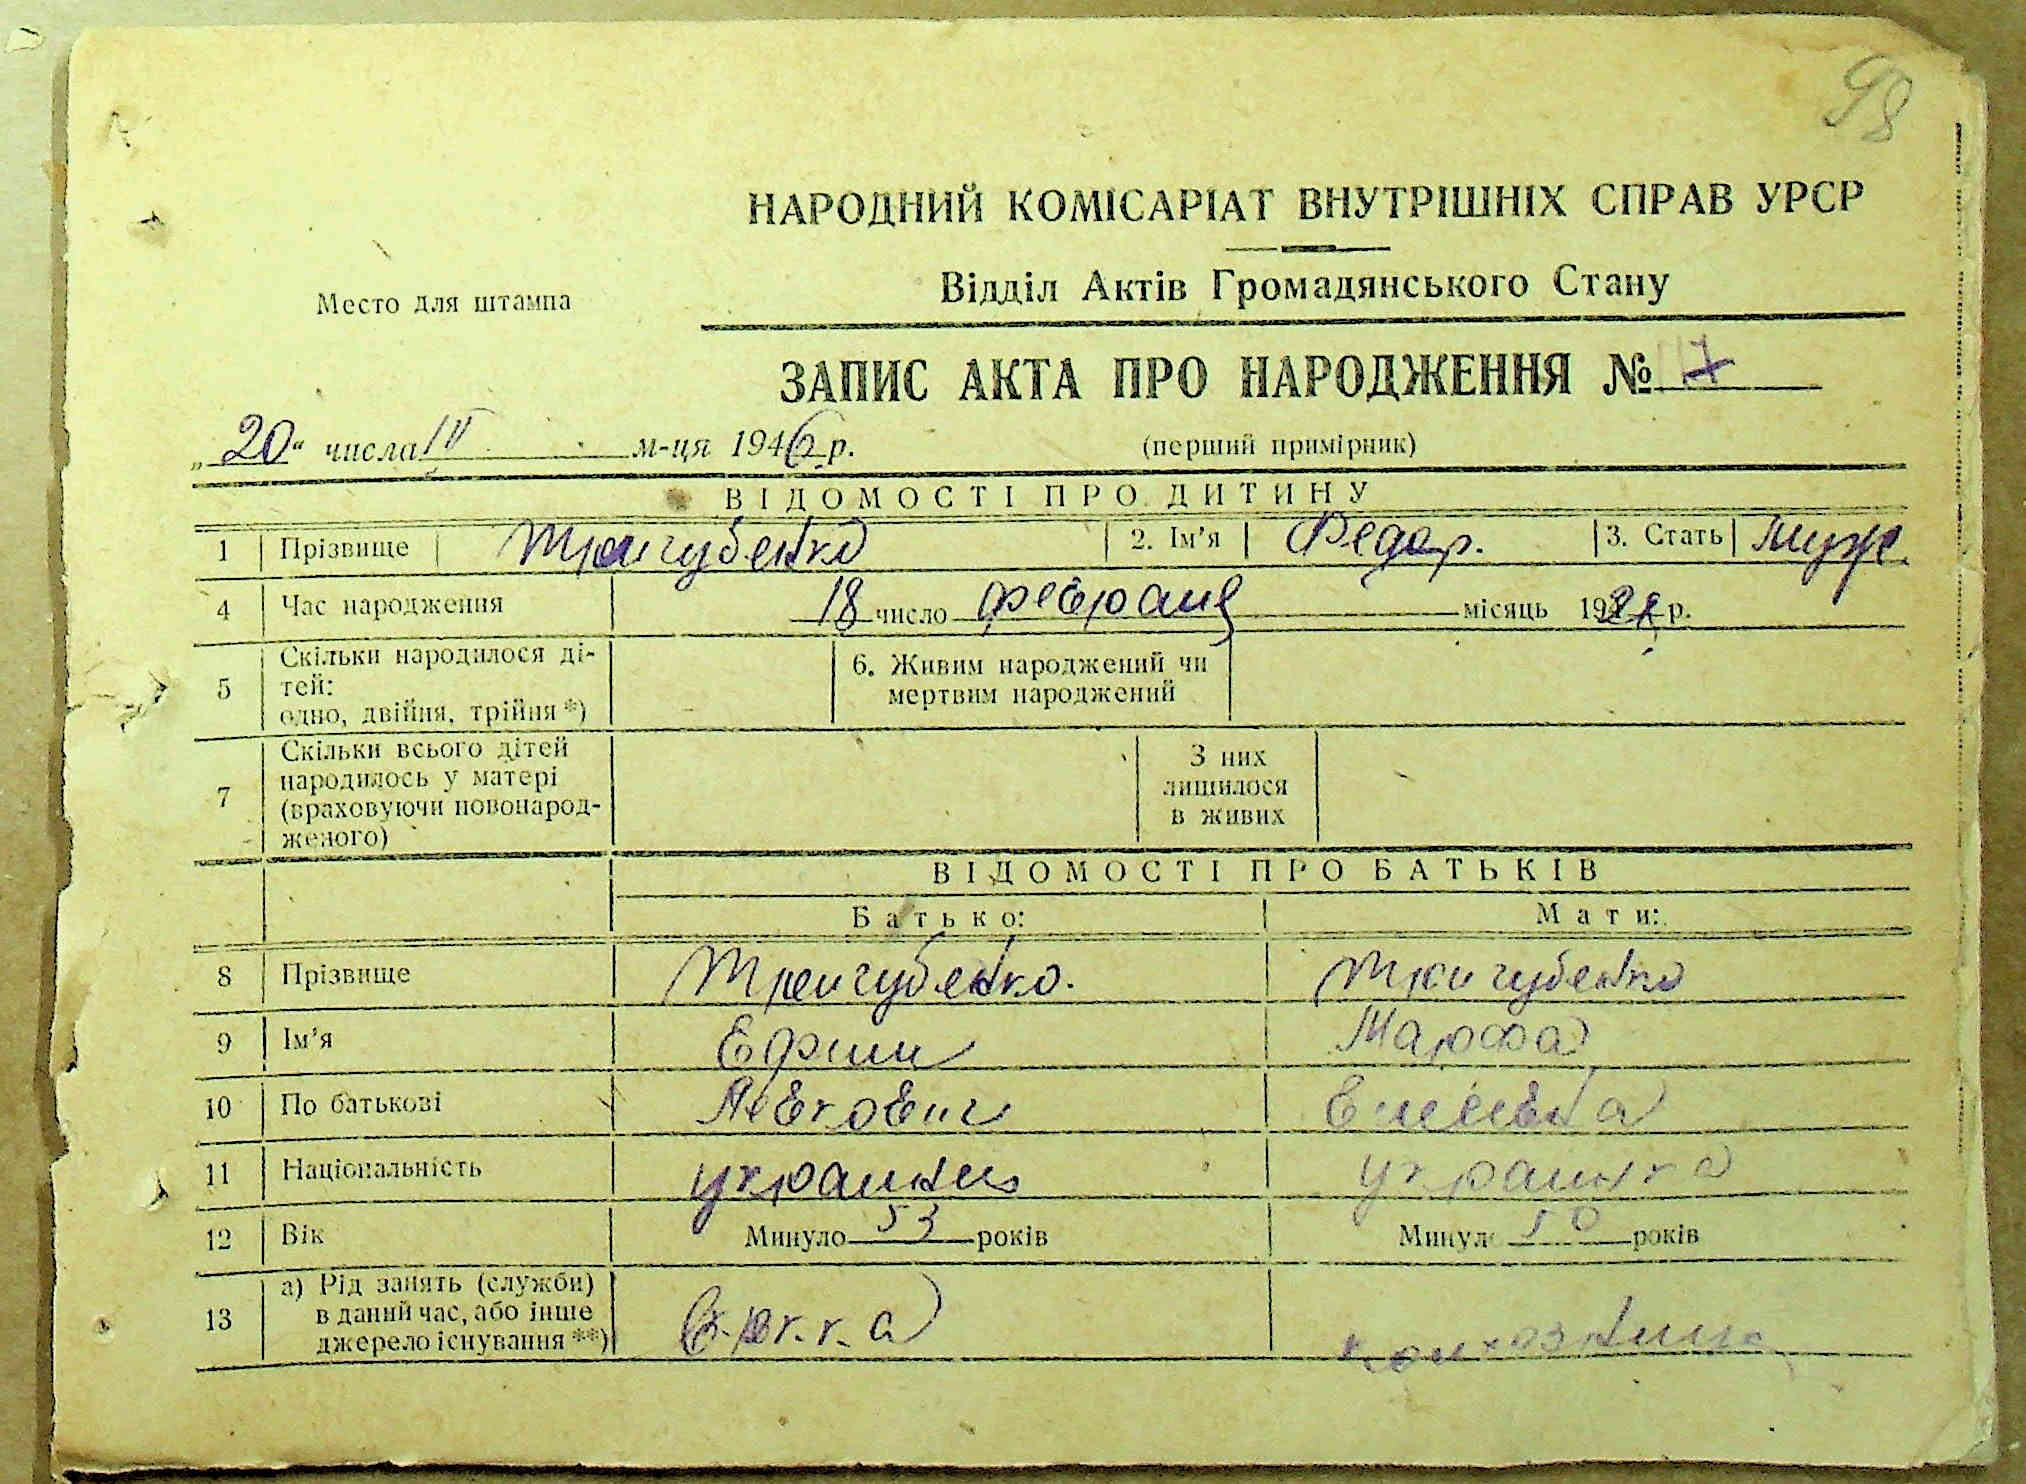 98
НАРОДНИЙ КОМІСАРІАТ ВНУТРІШНІХ СПРАВ УРСР
Відділ Актів Громадянського Стану
Место для штампа
ЗАПИС АКТА ПРО НАРОДЖЕННЯ № 117
„20“ числа IV м-ця 1946 р. (перший примірник)
ВІДОМОСТІ ПРО ДИТИНУ
1 Прізвище Тригубенко 2. Ім’я Федор. 3. Стать муж.
4 Час народження 18 число февраля місяць 192 р.
5 Скільки народилося ді-
тей:
одно, двійня, трійня *)
6. Живим народжений чи
мертвим народжений
7 Скільки всього дітей
народилось у матері
(враховуючи новонарод-
женого)
З них
лишилося
в живих
ВІДОМОСТІ ПРО БАТЬКІВ
Батько: Мати:
8 Прізвище Тригубенко. Тригубенко
9 Ім’я Ефим Марфа
10 По батькові Левкович
11 Національність украинец украинка
12 Вік Минуло 53 років Минуло 50 років
13 а) Рід занять (служби)
в даний час, або інше
джерело існування **)
колхозница